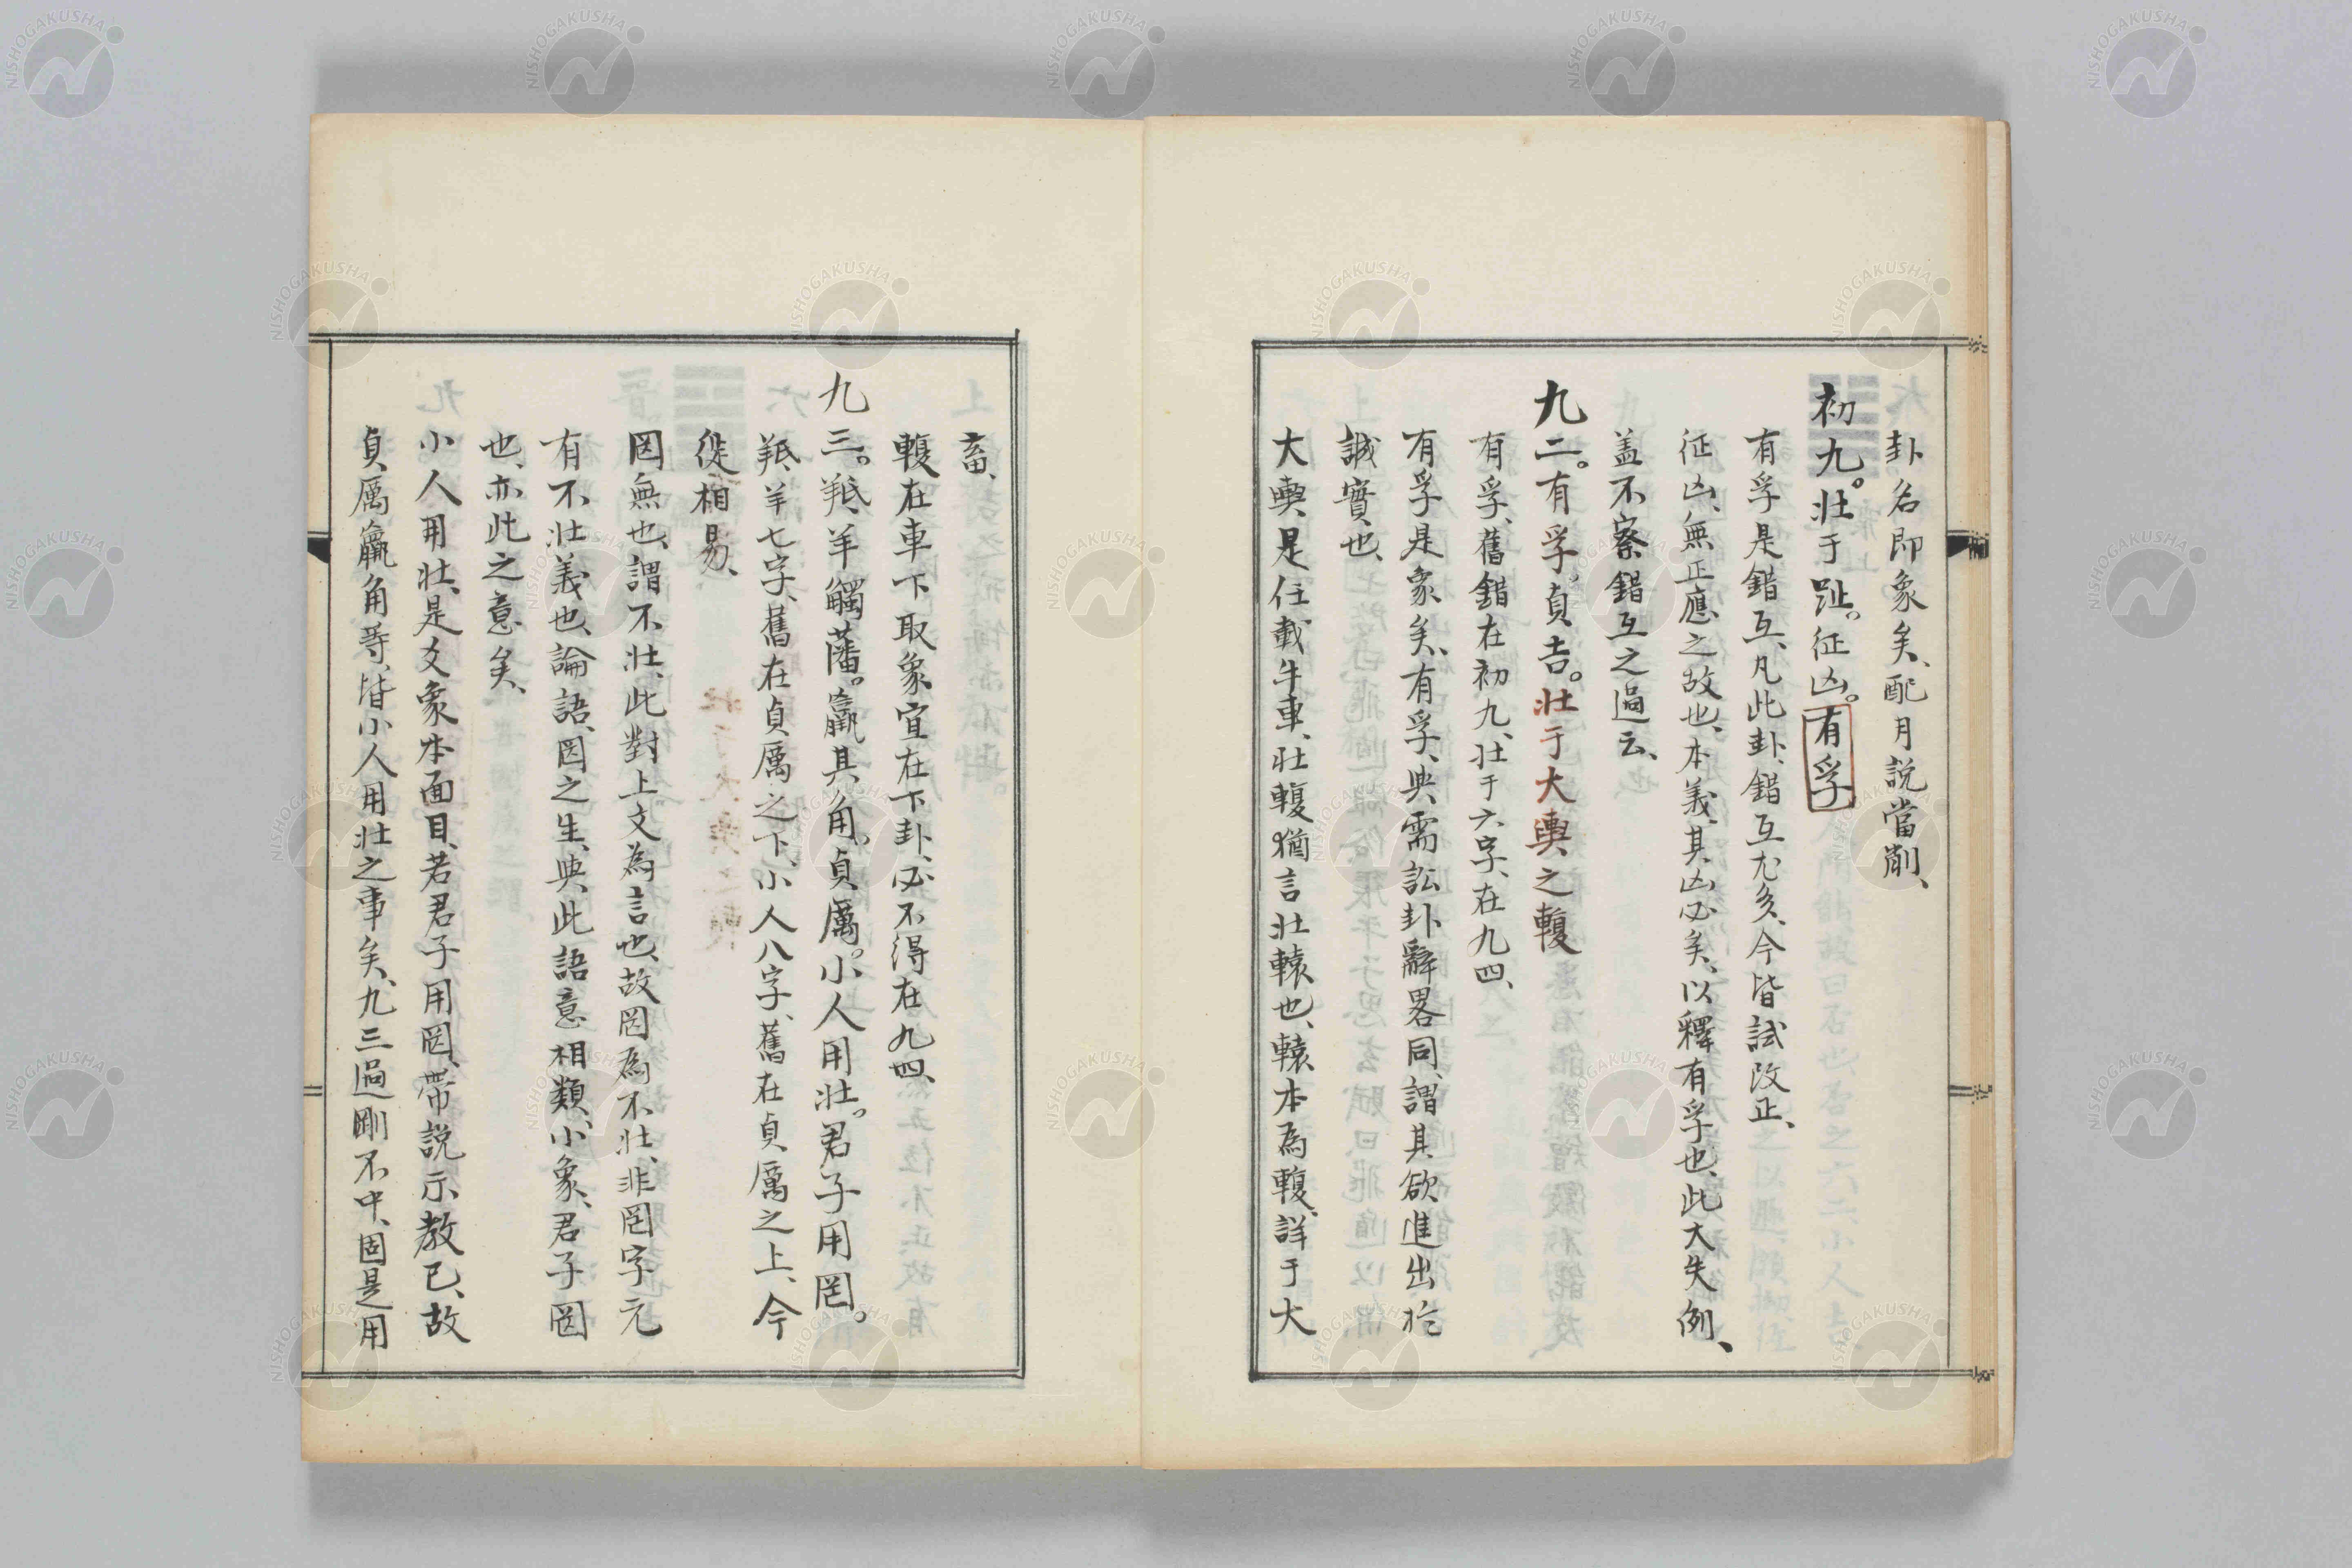 卦名即象矣、配月說當削、
初九。壯于趾。征凶。有孚
有孚是錯互、凡此卦、錯互尤多、今皆試改正、
征凶、無正應之故也、本義、其凶必矣、以釋有孚也、此大失例、
盖不察錯互之過云、
九二。有孚。貞吉。壯于大輿之輹
有孚、舊錯在初九、壯于六字、在九四、
有孚是象矣、有孚、與需訟卦辭畧同、謂其欲進出於
誠實也、
大輿是任載牛車、壯輹猶言壯轅也、轅本為輹、詳于大
畜、
輹在車下取象、宜在下卦、必不得在九四、
九三。羝羊觸藩。羸其角。貞厲。小人用壯。君子用罔。
羝羊七字、舊在貞厲之下、小人八字、舊在貞厲之上、今
從相易、
罔無也、謂不壯、此對上文為言也、故罔為不壯、非罔字元
有不壯義也、論語、罔之生、與此語意相類、小象、君子罔
也、亦此之意矣、
小人用壯、是爻象本面目、若君子用罔、帶說示教已、故
貞厲羸角等、皆小人用壯之事矣、九三過剛不中、固是用
NISHOGAKUSHA